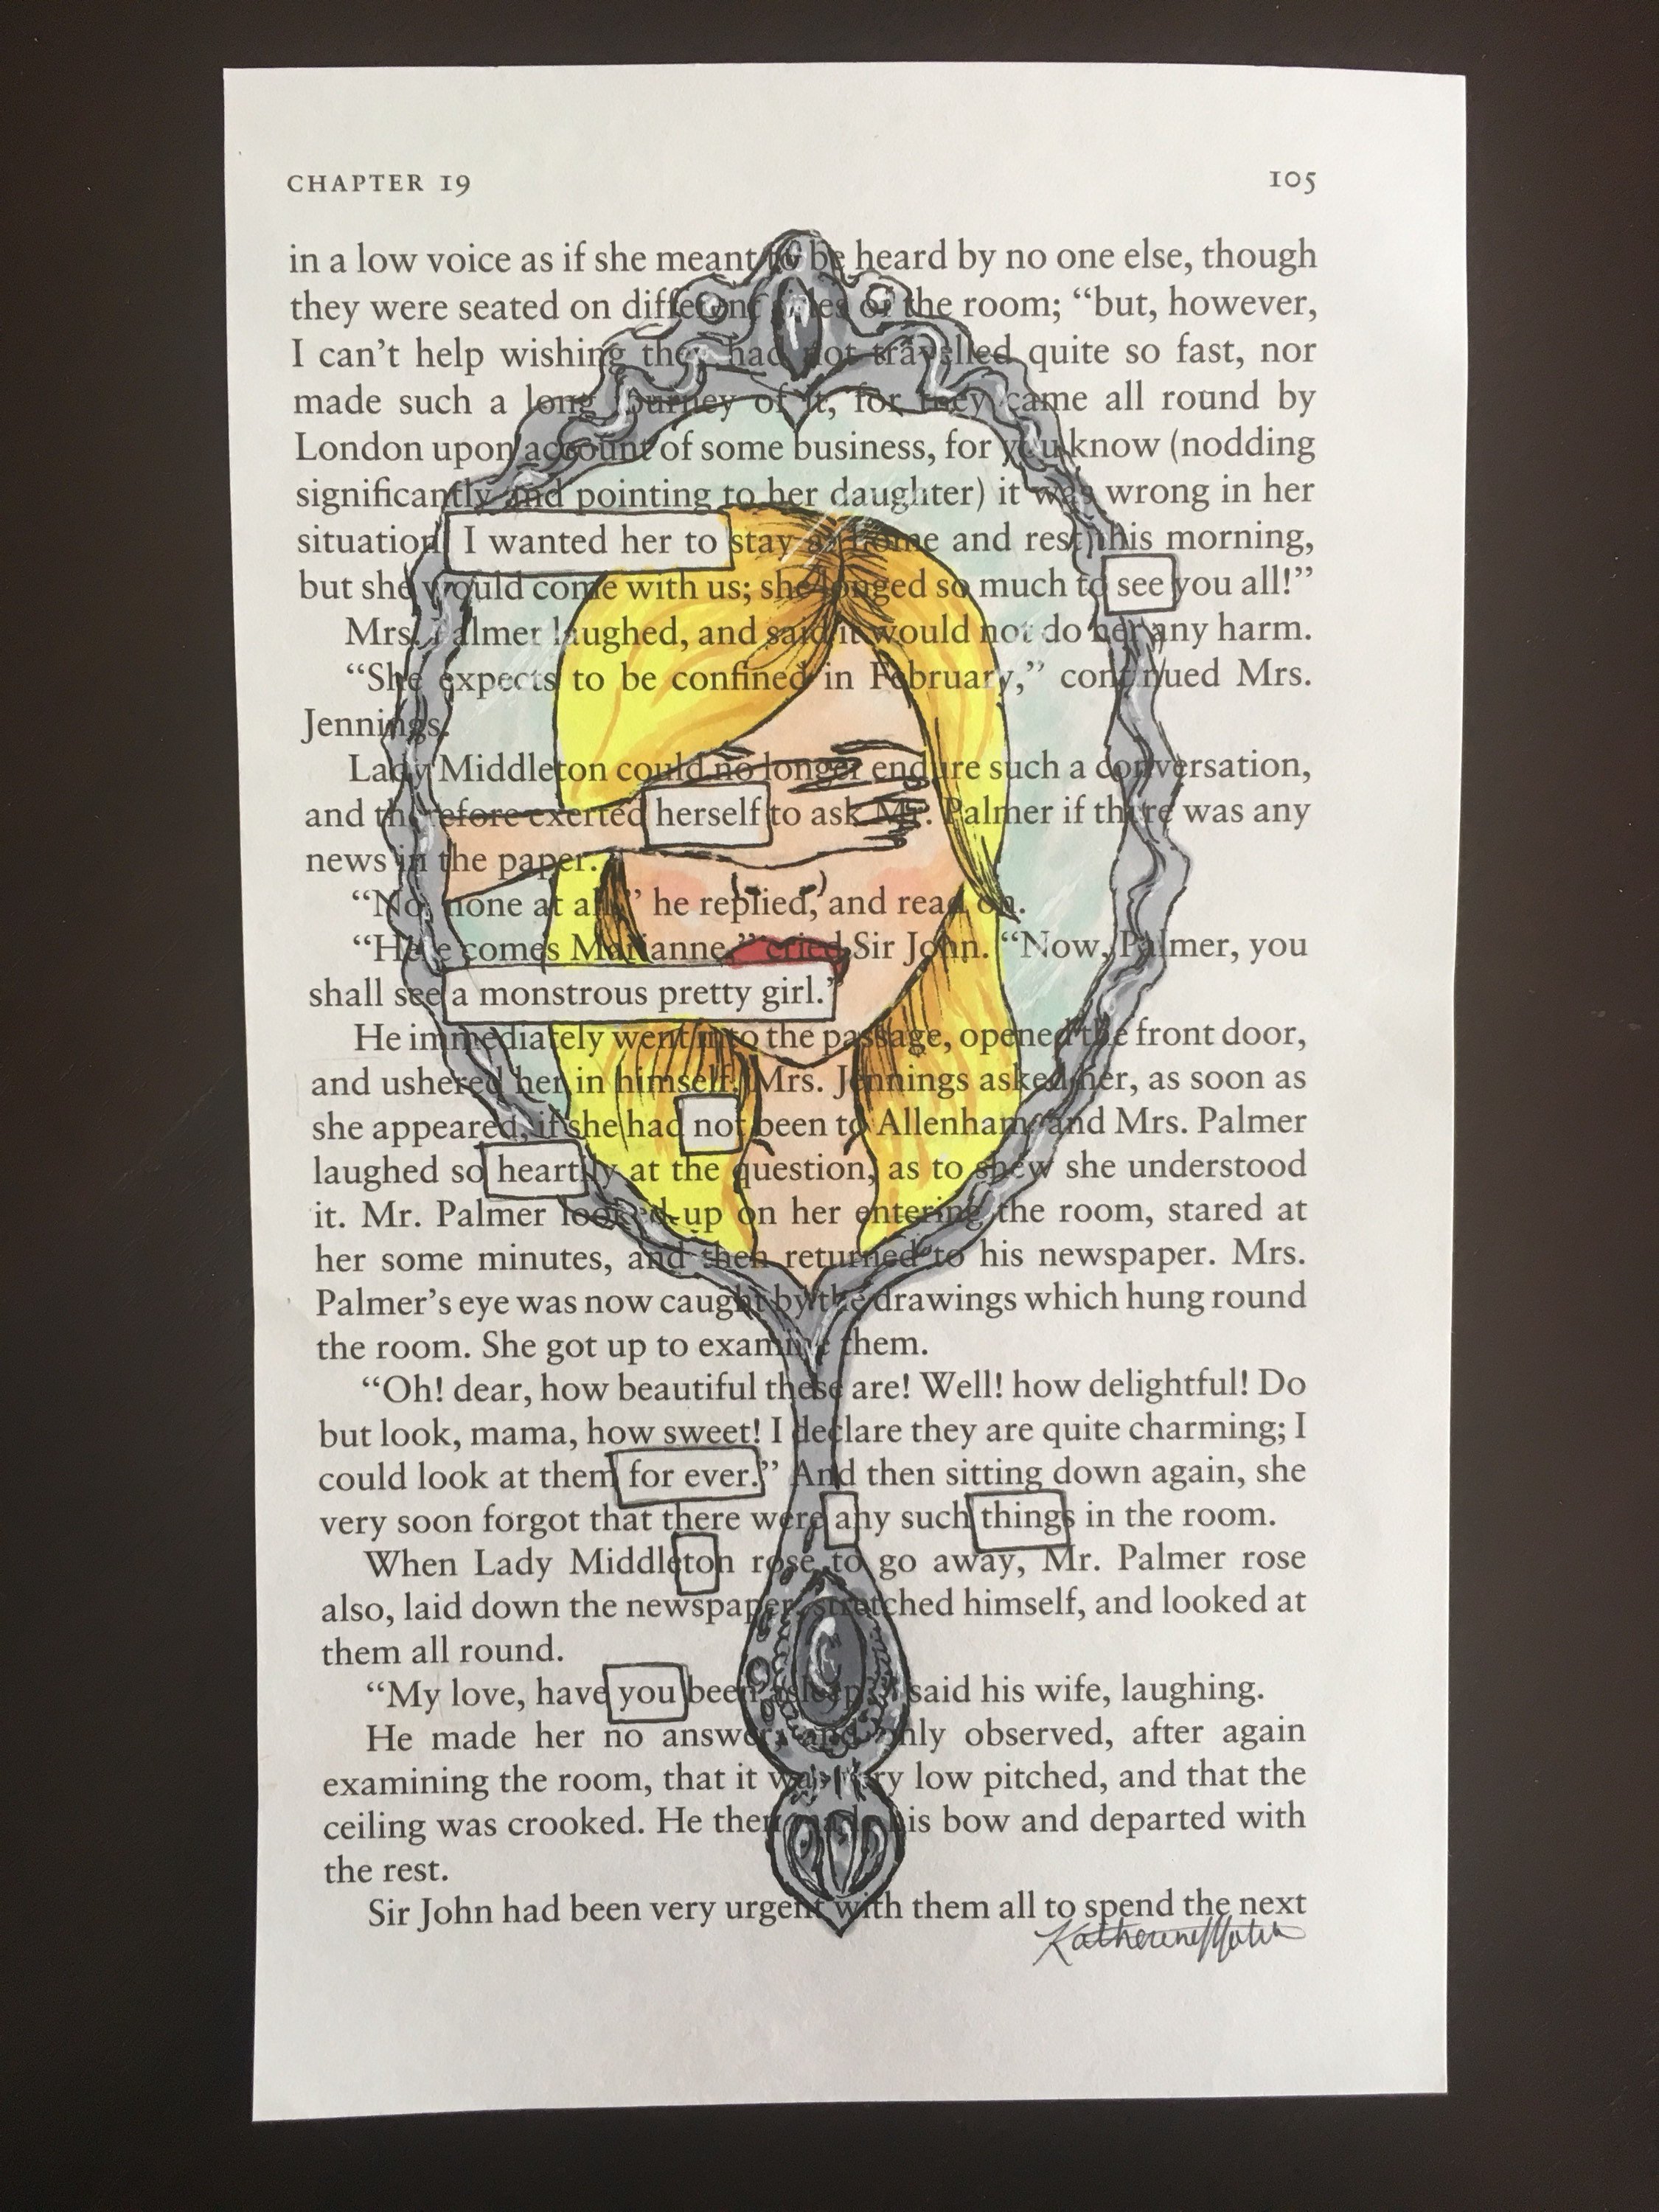 CHAPTER 19 105
in a low voice as if she meant to be heard by no one else, though
they were seated on different sides of the room; “but, however,
I can’t help wishing they had not travelled quite so fast, nor
made such a long journey of it, for they came all round by
London upon account of some business, for you know (nodding
significantly and pointing to her daughter) it was wrong in her
situation. I wanted her to stay at home and rest this morning,
but she would come with us; she longed so much to see you all!”
Mrs. Palmer laughed, and said it would not do her any harm.
“She expects to be confined in February,” continued Mrs.
Jennings.
Lady Middleton could no longer endure such a conversation,
and therefore exerted herself to ask Mr. Palmer if there was any
news in the paper.
“No, none at all,” he replied, and read on.
“Here comes Marianne,” cried Sir John. “Now, Palmer, you
shall see a monstrous pretty girl.”
He immediately went into the passage, opened the front door,
and ushered her in himself. Mrs. Jennings asked her, as soon as
she appeared, if she had not been to Allenham; and Mrs. Palmer
laughed so heartily at the question, as to shew she understood
it. Mr. Palmer looked up on her entering the room, stared at
her some minutes, and then returned to his newspaper. Mrs.
Palmer’s eye was now caught by the drawings which hung round
the room. She got up to examine them.
“Oh! dear, how beautiful these are! Well! how delightful! Do
but look, mama, how sweet! I declare they are quite charming; I
could look at them for ever.” And then sitting down again, she
very soon forgot that there were any such things in the room.
When Lady Middleton rose to go away, Mr. Palmer rose
also, laid down the newspaper, stretched himself, and looked at
them all round.
“My love, have you been asleep?” said his wife, laughing.
He made her no answer; and only observed, after again
examining the room, that it was very low pitched, and that the
ceiling was crooked. He then made his bow and departed with
the rest.
Sir John had been very urgent with them all to spend the next
Katherine